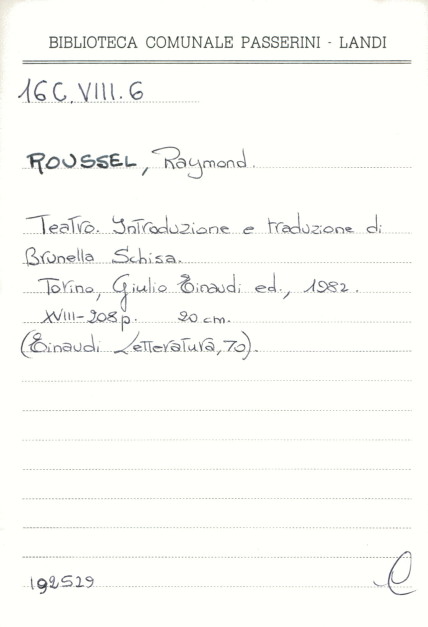 BIBLIOTECA COMUNALE PASSERINI - LANDI
16C.VIII.6
ROUSSEL, Raymond.
Teatro. Introduzione e traduzione di
Brunella Schisa.
Torino, Giulio Einaudi ed., 1982.
XVIII-208 p. 20 cm.
(Einaudi Letteratura, 70).
192529